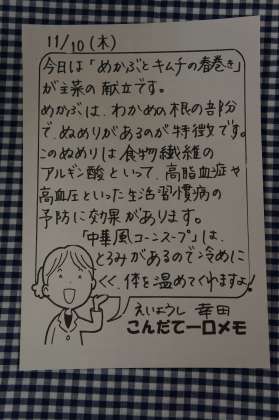 11/10(木)
今日は「めかぶとキムチの春巻き」
が主菜の献立です。
めかぶは、わかめの根の部分
で、ぬめりがあるのが特徴です。
このぬめりは食物繊維の
アルギン酸といって、高脂血症や
高血圧といった生活習慣病の
予防に効果があります。
「中華風コーンスープ」は、
とろみがあるので冷めに
くく、体を温めてくれますよ!
えいようし 幸田
こんだて一口メモ